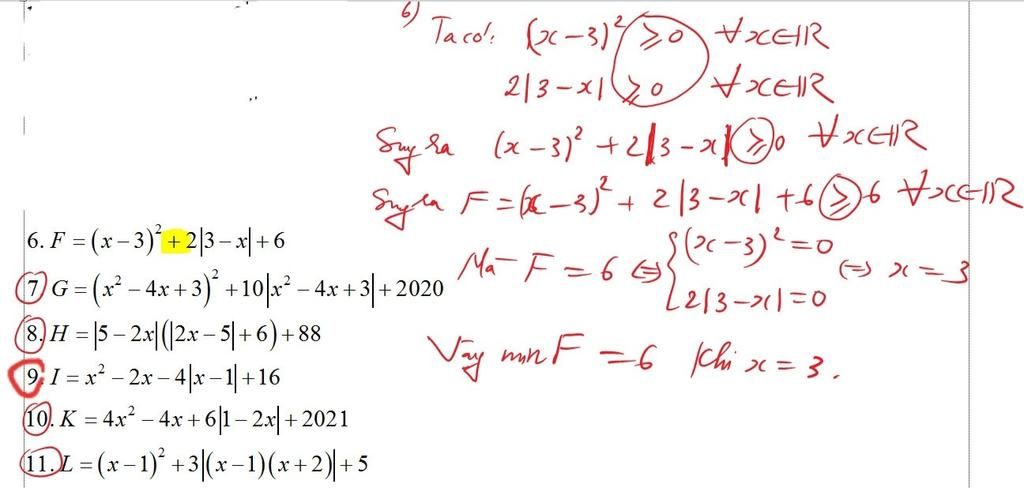 6) Ta có: (x-3)² ≥ 0 ∀x∈ℝ
2|3-x| ≥ 0 ∀x∈ℝ
Suy ra (x-3)² + 2|3-x| ≥ 0 ∀x∈ℝ
Suy ra F = (x-3)² + 2|3-x| + 6 ≥ 6 ∀x∈ℝ
Mà F = 6 ⇔ { (x-3)² = 0
2|3-x| = 0 ⇔ x = 3
Vậy min F = 6 khi x = 3.
6. F = (x-3)² + 2|3-x| + 6
7. G = (x² - 4x + 3)² + 10|x² - 4x + 3| + 2020
8. H = |5-2x|(|2x-5| + 6) + 88
9. I = x² - 2x - 4|x-1| + 16
10. K = 4x² - 4x + 6|1-2x| + 2021
11. L = (x-1)² + 3|(x-1)(x+2)| + 5